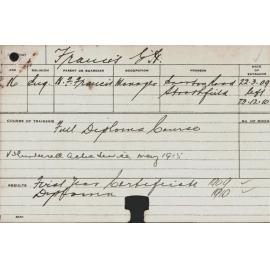 Francis G.H.
AGE RELIGION PARENT OR GUARDIAN OCCUPATION ADDRESS DATE OF ENTRANCE
16 Eng. W. F. Francis Manager Road 22.3.09
Strathfield left
23.12.10
COURSE OF TRAINING No. OF
Full Diploma Course
Volunteered Active Service May 1915
RESULTS First Year Certificate 1909
Diploma 1910